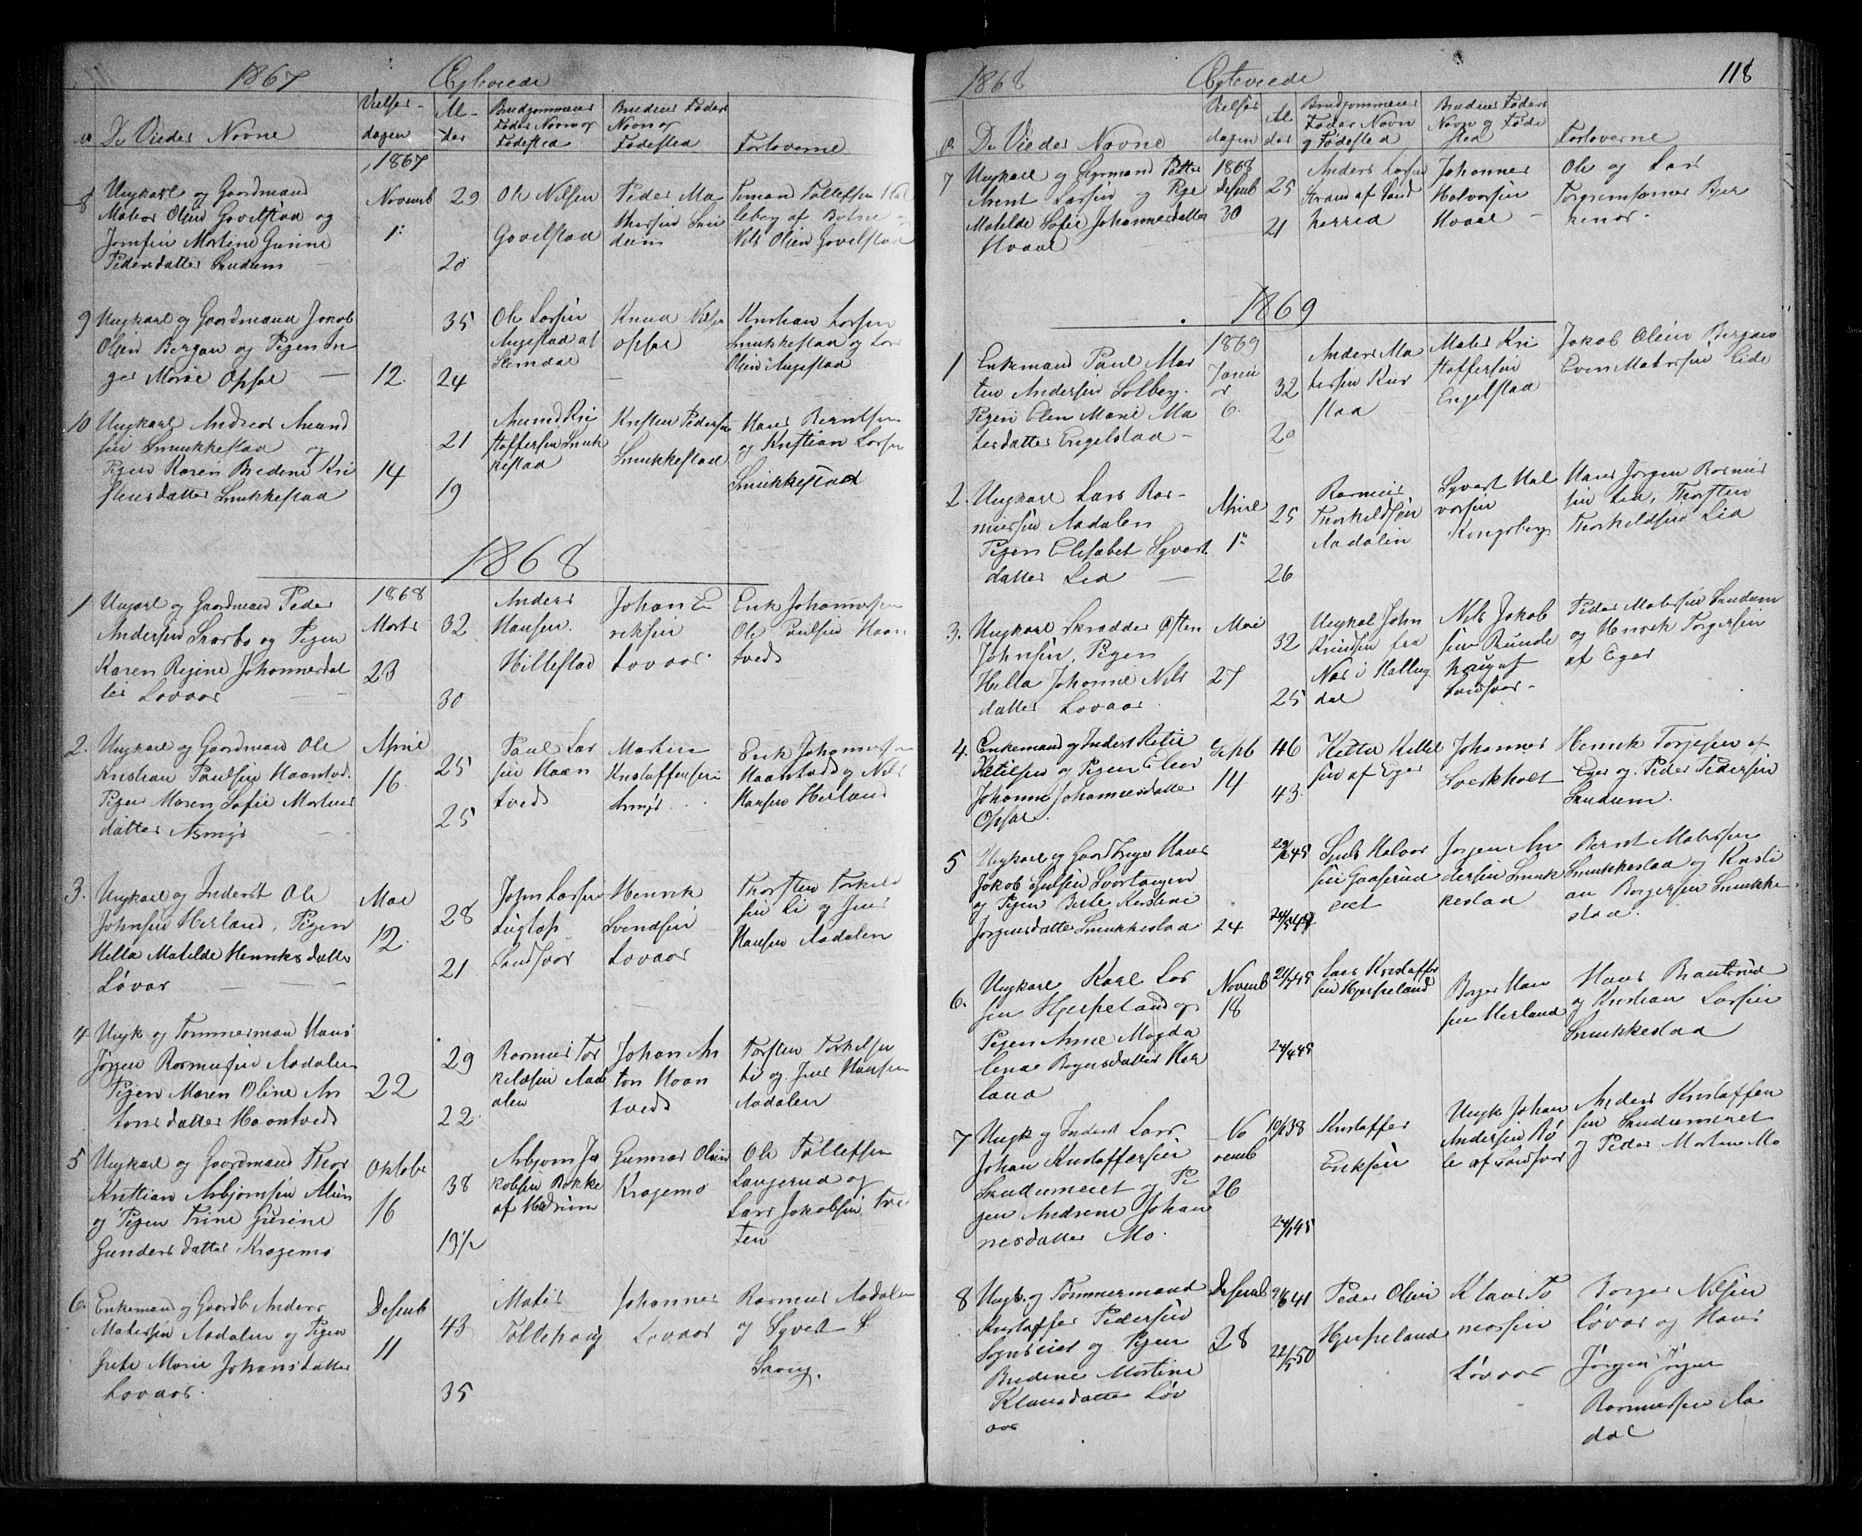 1867 Egteviede
No De Viedes Navne
Vielses-
dagen
Al-
der
Brudgommens
Fader Navn og
Fødested
Brudens Faders
Navn og
Fødested
Forloverne
1867
8 Ungkarl og Gaardmand
Mates Olsen Gavelstad og
Jomfru Martine Gurine
Pedersdatter Skudum
Novemb
1:
29
20
Ole Nilsen
Gavelstad
Peder Ma
thisen Sku
dum
Tollefsen
Nils Olsen Gavelstad
9 Ungkarl og Gaardmand Jakob
Olsen Bergan og Pigen In
ger Marie Opsal
12.
35
24
Ole Larsen
Angestad af
Slemdal
Knud Nilsen
Opsal
Kristian Larsen
Smukkestad og Lars
Olsen Angestad
10 Ungkarl Andreas Amund
sen Smukkestad og
Pigen Karen Bredine Kri
stensdatter Smukkestad
14
21
19
Amund Kri
stoffersen Smuk
kestad
Kristen Pedersen
Smukkestad
Hans Berntsen
og Kristian Larsen
Smukkestad
1868
1 Ungkarl og Gaardmand Peder
Andersen Skarbo og Pigen
Karen Regine Johannesdat
ter Lovaas
1868
Marts
23
32
30
Anders
Hansen
Hillestad
Johan E
riksen
Lovaas
Erik Johannesen
Ole Paulsen Haan
tveds
2. Ungkarl og Gaardmand Ole
Kristian Paulsen Haantved.
Pigen Maren Sofie Martins
datter Asmyr
April
16.
25
25
Paul Lar
sen Haan
tveds
Martin
Kristoffersen
Asmyr
Erik Johannesen
Haantveds og Nils
Hansen Herland
3. Ungkarl og Inderst Ole
Johnsen Herland, Pigen
Hella Matilde Henriksdatter
Løvas
Mai
12.
28
21
John Larsen
Sandsvær
Henrik
Svendsen
Lovaas
Thorsten Torkild
sen Li og Jens
Hansen Aadalen
4 Ungk og Tømmermand Hans
Jørgen Rasmusen Aadalen
Pigen Maren Oline An
tonsdatter Haantveds
22
29
22
Rasmus Tor
kildsen Aad
alen
Johan An
ton Haan
tveds
Torsten Torkelsen
Li og Jens Hansen
Aadalen
5 Ungkarl og Gaardmand Thor
Kristian Asbjørnsen Moen
og Pigen Trine Gurine
Gundersdatter Kragemo
Oktobr
16
38
19½
Asbjørn Ja
kobsen Bakke
af Hedrum
Gunnar Olsen
Kragemo
Ole Tollefsen
Langerud og
Lars Jakobsen Tve
ten
6. Enkemand og Gaardb. Anders
Matesen Aadalen og Pigen
Grete Marie Johansdatter
Lovaas.
Desemb
11
43
35
Mates
Tollehaug
Johannes
Lovaas
Rasmus Aadalen
og Syvert
1868 Egteviede 118
No De Viedes Navne
Vielses
dagen
Al
der
Brudgommens
Fader Navn
og Fødested
Brudens Faders
Navn og Føde
sted
Forloverne
7 Ungkarl og Styrmand Petter
Arent Larsen og Pige
Matilde Sofie Johannesdatter
Hvaal
1868
Desemb
30
25
21
Anders Larsen
Strand af Sand
herred
Johannes
Halvorsen
Hvaal
Ole og Lars
Torgrimsønner Bjer
kenes.
1869
1 Enkemand Paul Mar
tin Andersen Solberg.
Pigen Elen Marie Ma
tesdatter Engelstad
1869
Janu
ar
6.
32
20
Anders Ma
tesen Kur
stad
Mates Kri
stoffersen
Engelstad
Jakob Olsen Bergan
Even Matesen Lide
2. Ungkarl Lars Ras-
musen Aadalen
Pigen Elisabet Syverts
datter Lia
April
1:
25
26
Rasmus
Thorkildsen
Aadalen
Syvert Hal
vorsen
Kongsberg
Hans Jørgen Rasmus
sen Lia, Thorsten
Thorkildsen Lia
3. Ungkarl Skrædder Østen
Johnsen, Pigen
Hella Johanne Nils
datter Lovaas
Mai
27
32
25
Ungkal John
Knudsen fra
Næs i Halling
dal
Nils Jakob
sen Runde
haug af
Sandsvær
Peder Matesen Skudum
og Henrik Torgersen
af Eger
4. Enkemand og Inderst Ketil
Ketilsen og Pigen Elen
Johanne Johannesdatter
Opsal.
Septb
14
46
43.
Kittel Kittel
sen af Eger
Johannes
Seekholt
Henrik Torjesen af
Eger og Peder Pedersen
Skudum.
5 Ungkarl og Gaardbruger Hans
Jakob Sjulsen Svartangen
og Pigen Berte Kirstine
Jørgensdatter Smukkestad
24
Sjuls Halvor
sen Gaaserud
eiet
Jørgen An
dersen Smuk
kestad
Bernt Matesen
Smukkestad og Kristi
an Borgersen Smukke
stad.
6. Ungkarl Karl Lar
sen Hjerpeland og
Pigen Anne Magda
lena Borgersdatter Her
land
Novemb
18
Lars Kristoffer
sen Hjerpeland
Borger Han
sen Herland
Hans Brantsrud
og Kristian Larsen
Smukkestad
7 Ungk og Inderst Lars
Johan Kristoffersen
Skudumeiet og Pi
gen Andrine Johan
nesdatter Mo.
No
vemb
26
Kristoffer
Eriksen
Ungk Johan
Andersen Rø
le af Sandsvær
Anders Kristoffer
sen Skudumeiet
og Peder Martin Mo
8 Ungk. og Tømmermand
Kristoffer Pedersen
Sognseiet og Pigen
Bredine Martine
Klausdatter Løv
aas
Desemb
28
22/5 50
Peder Olsen
Hjerpeland
Klaus To
massen
Løvaas
Borger Nilsen
Løvas og Hans
Jørgen Jørgen
Rasmussen Aa
dal